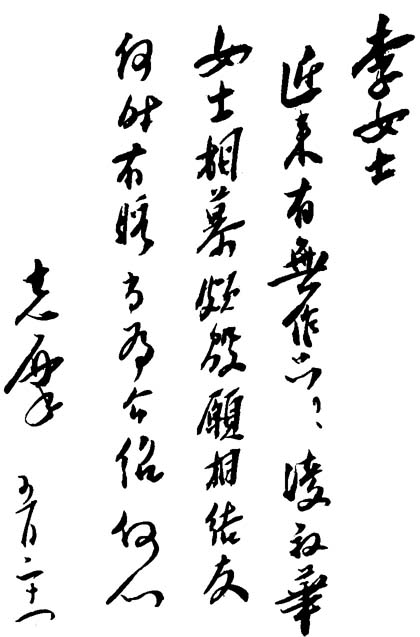 李女士
近来有無作品？凌叔華
女士相慕頗殷願相结友
何时有暇当为介绍何如
志摩 五月二十一